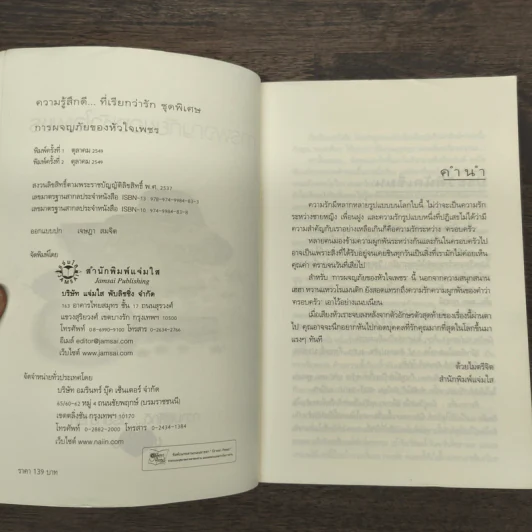 ความรู้สึกดี... ที่เรียกว่ารัก ชุดพิเศษ
การผจญภัยของหัวใจเพชร
พิมพ์ครั้งที่ 1 ตุลาคม 2549
พิมพ์ครั้งที่ 2 ตุลาคม 2549
สงวนลิขสิทธิ์ตามพระราชบัญญัติลิขสิทธิ์ พ.ศ. 2537
เลขมาตรฐานสากลประจำหนังสือ ISBN-13
เลขมาตรฐานสากลประจำหนังสือ ISBN-10
ออกแบบปก เจษฎา สมจิต
จัดพิมพ์โดย
สำนักพิมพ์แจ่มใส
Jamsai Publishing
บริษัท แจ่มใส พับลิชชิ่ง จำกัด
163 อาคารไทยสมุทร ชั้น 17 ถนนสุรวงศ์
แขวงสุริยวงศ์ เขตบางรัก กรุงเทพฯ 10500
โทรศัพท์ โทรสาร
อีเมล์ editor@jamsai.com
เว็บไซต์ www.jamsai.com
จัดจำหน่ายทั่วประเทศโดย
บริษัท อมรินทร์ บุ๊ค เซ็นเตอร์ จำกัด
65/60-62 หมู่ 4 ถนนชัยพฤกษ์ (บรมราชชนนี)
เขตตลิ่งชัน กรุงเทพฯ 10170
โทรศัพท์ 0-2882-2000 โทรสาร
เว็บไซต์ www.naiin.com
ราคา 139 บาท
คำนำ
ความรักมีหลากหลายรูปแบบบนโลกใบนี้ ไม่ว่าจะเป็นความรัก
ระหว่างชายหญิง เพื่อนฝูง และความรักรูปแบบหนึ่งที่ปฏิเสธไม่ได้ว่ามี
ความสำคัญกับเราอย่างเหลือเกินก็คือความรักระหว่าง 'ครอบครัว'
หลายคนมองข้ามความผูกพันระหว่างกันและกันในครอบครัวไป
อาจเป็นเพราะสิ่งที่ได้รับอยู่จนเคยชินทุกวันเป็นสิ่งที่เรามักไม่ค่อยเห็น
คุณค่า ตราบจนวันที่เสียไป
สำหรับ 'การผจญภัยของหัวใจเพชร' นี้ นอกจากความสนุกสนาน
เฮฮา หวานแหววโรแมนติก ยังสอดแทรกถึงความรักความผูกพันของคำว่า
'ครอบครัว' เอาไว้อย่างแนบเนียน
เมื่อเสียงหัวเราะจบลงหลังจากตัวอักษรตัวสุดท้ายของเรื่องนี้ผ่านตา
ไป คุณอาจจะนึกอยากหันไปกอดบุคคลที่รักคุณมากที่สุดในโลกขึ้นมา
แรงๆ ทันที
ด้วยไมตรีจิต
สำนักพิมพ์แจ่มใส